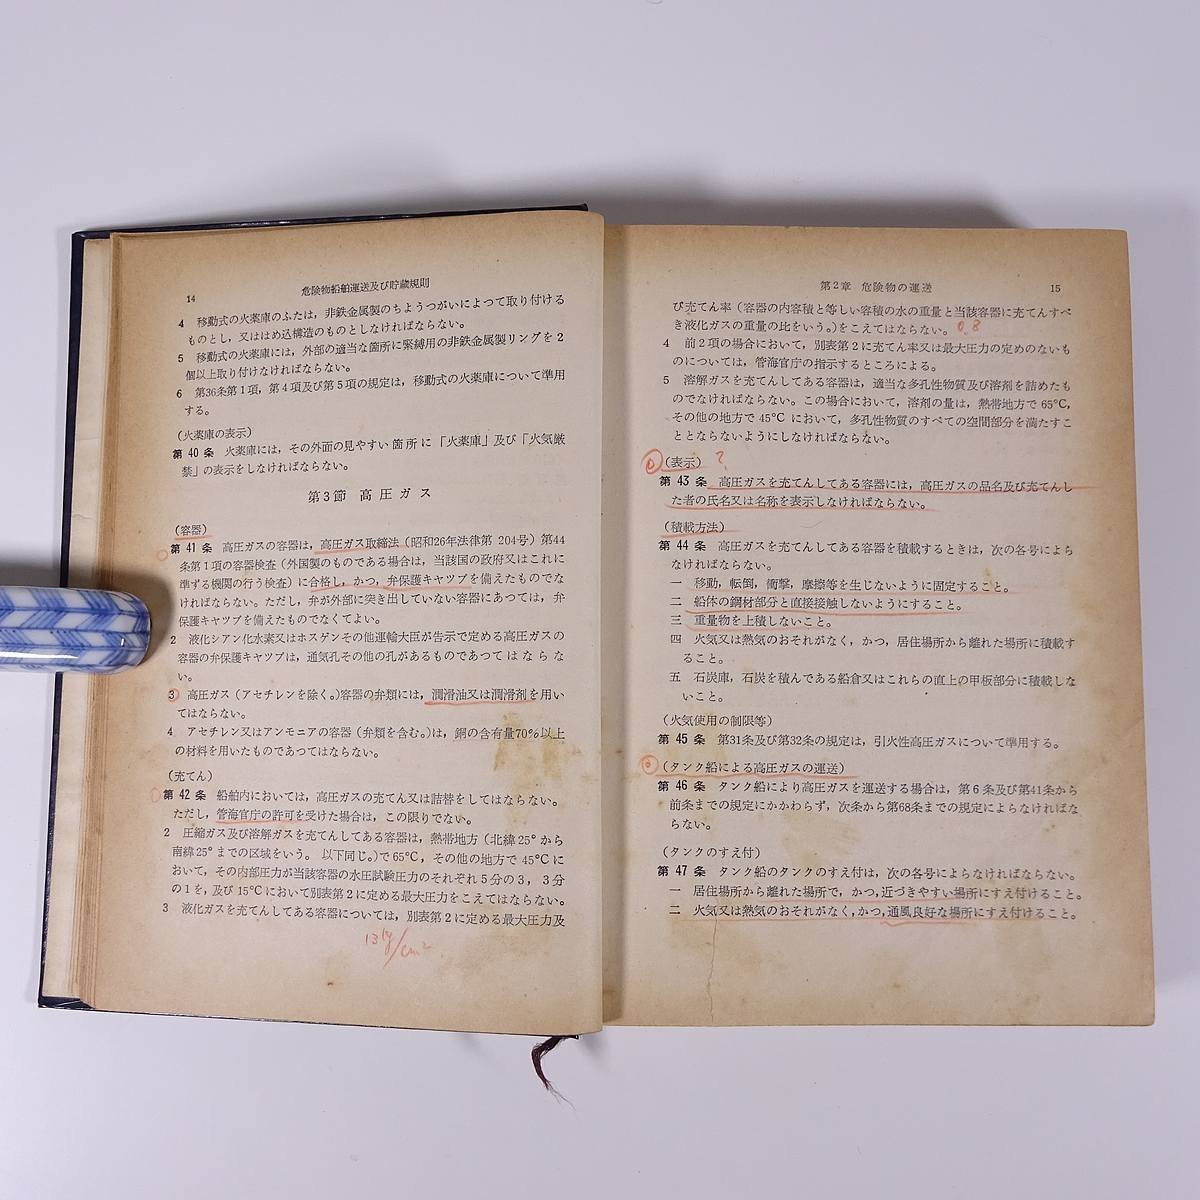 14
危険物船舶運送及び貯蔵規則
4 移動式の火薬庫のふたは,非鉄金属製のちようつがいによつて取り付ける
ものとし,又ははめ込構造のものとしなければならない。
5 移動式の火薬庫には,外部の適当な箇所に緊縛用の非鉄金属製リングを2
個以上取り付けなければならない。
6 第36条第1項,第4項及び第5項の規定は,移動式の火薬庫について準用
する。
(火薬庫の表示)
第40条 火薬庫には,その外面の見やすい箇所に「火薬庫」及び「火気厳
禁」の表示をしなければならない。
第3節 高圧ガス
(容器)
第41条 高圧ガスの容器は,高圧ガス取締法(昭和26年法律第 204号)第44
条第1項の容器検査(外国製のものである場合は,当該国の政府又はこれに
準ずる機関の行う検査)に合格し,かつ,弁保護キヤツプを備えたものでな
ければならない。ただし,弁が外部に突き出していない容器にあつては,弁
保護キヤツプを備えたものでなくてよい。
2 液化シアン化水素又はホスゲンその他運輸大臣が告示で定める高圧ガスの
容器の弁保護キヤツプは,通気孔その他の孔があるものであつてはならな
い。
3 高圧ガス(アセチレンを除く。)容器の弁類には,潤滑油又は潤滑剤を用い
てはならない。
4 アセチレン又はアンモニアの容器(弁類を含む。)は,銅の含有量70%以上
の材料を用いたものであつてはならない。
(充てん)
第42条 船舶内においては,高圧ガスの充てん又は詰替をしてはならない。
ただし,管海官庁の許可を受けた場合は,この限りでない。
2 圧縮ガス及び溶解ガスを充てんしてある容器は,熱帯地方(北緯25°から
南緯25°までの区域をいう。以下同じ。)で65°C,その他の地方で45°Cに
おいて,その内部圧力が当該容器の水圧試験圧力のそれぞれ5分の3,3分
の1を,及び15°Cにおいて別表第2に定める最大圧力をこえてはならない。
3 液化ガスを充てんしてある容器については,別表第2に定める最大圧力及
13kg/cm²
第2章 危険物の運送
15
び充てん率(容器の内容積と等しい容積の水の重量と当該容器に充てんすべ
き液化ガスの重量の比をいう。)をこえてはならない。 0.8
4 前2項の場合において,別表第2に充てん率又は最大圧力の定めのないも
のについては,管海官庁の指示するところによる。
5 溶解ガスを充てんしてある容器は,適当な多孔性物質及び溶剤を詰めたも
のでなければならない。この場合において,溶剤の量は,熱帯地方で65°C,
その他の地方で45°Cにおいて,多孔性物質のすべての空間部分を満たすこ
ととならないようにしなければならない。
(表示) ?
第43条 高圧ガスを充てんしてある容器には,高圧ガスの品名及び充てんし
た者の氏名又は名称を表示しなければならない。
(積載方法)
第44条 高圧ガスを充てんしてある容器を積載するときは,次の各号によら
なければならない。
一 移動,転倒,衝撃,摩擦等を生じないように固定すること。
二 船体の鋼材部分と直接接触しないようにすること。
三 重量物を上積しないこと。
四 火気又は熱気のおそれがなく,かつ,居住場所から離れた場所に積載す
ること。
五 石炭庫,石炭を積んである船倉又はこれらの直上の甲板部分に積載しな
いこと。
(火気使用の制限等)
第45条 第31条及び第32条の規定は,引火性高圧ガスについて準用する。
(タンク船による高圧ガスの運送)
第46条 タンク船により高圧ガスを運送する場合は,第6条及び第41条から
前条までの規定にかかわらず,次条から第68条までの規定によらなければな
らない。
(タンクのすえ付)
第47条 タンク船のタンクのすえ付は,次の各号によらなければならない。
一 居住場所から離れた場所で,かつ,近づきやすい場所にすえ付けること。
二 火気又は熱気のおそれがなく,かつ,通風良好な場所にすえ付けること。